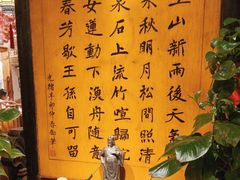 山新雨後天氣
來秋明月松間照清
泉石上流竹喧歸浣
女蓮動下漁舟隨意
春芳歇王孫自可留
光緒辛卯仲